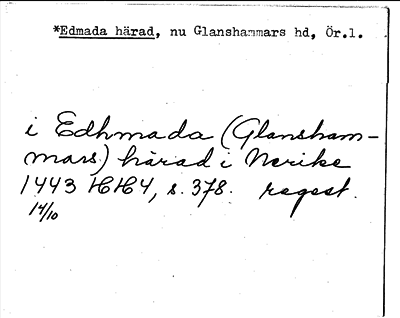 *Edmada härad, nu Glanshammars hd, Ör.l.
i Edhmada (Glansham-
mars) härad i Nerike
1443 HH4, s. 378. regest.
14/10